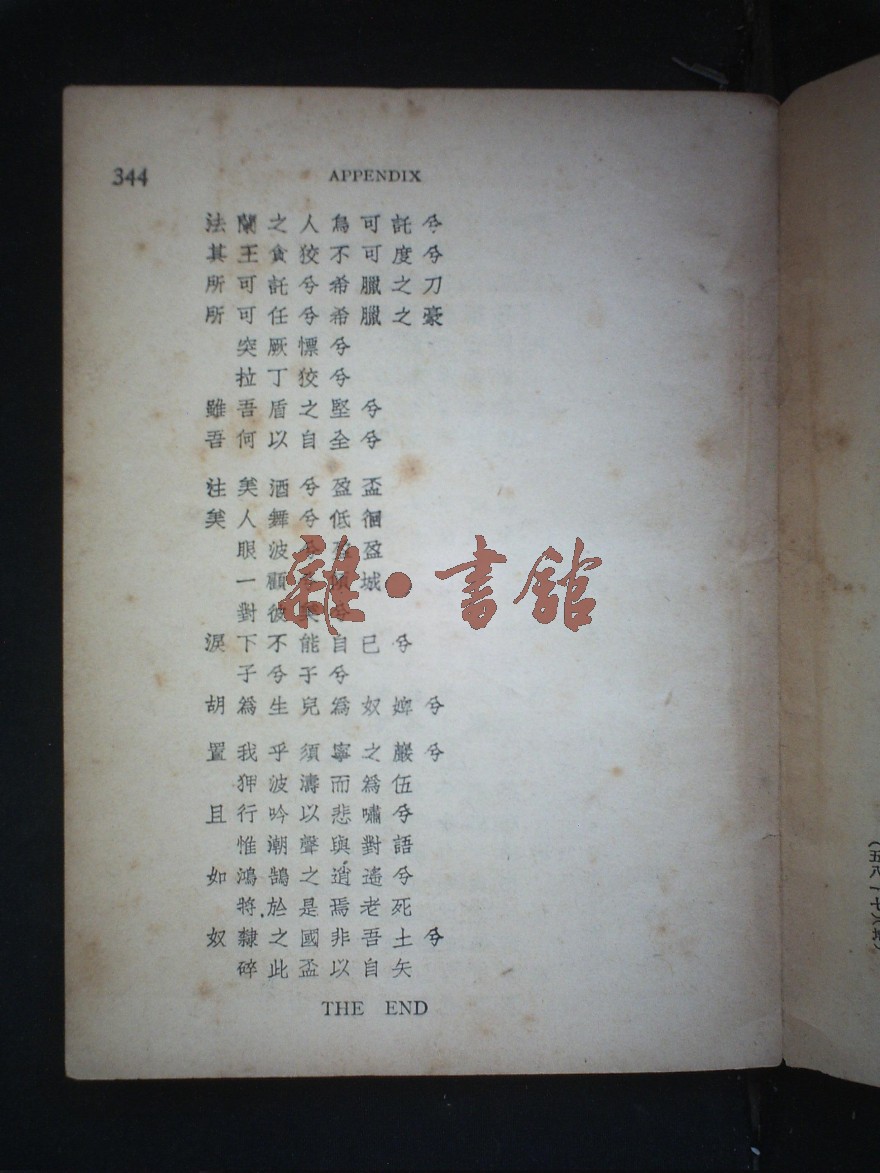 344
APPENDIX
法蘭之人烏可託兮
其王貪狡不可度兮
所可託兮希臘之刀
所可任兮希臘之豪
突厥慓兮
拉丁狡兮
雖吾盾之堅兮
吾何以自全兮
注美酒兮盈盃
美人舞兮低徊
眼波兮盈盈
一顧兮傾城
對彼美兮
淚下不能自已兮
子兮子兮
胡爲生兒爲奴婢兮
置我乎須寧之巖兮
狎波濤而爲伍
且行吟以悲嘯兮
惟潮聲與對語
如鴻鵠之逍遙兮
將於是焉老死
奴隸之國非吾土兮
碎此盃以自矢
THE END
雜·書館